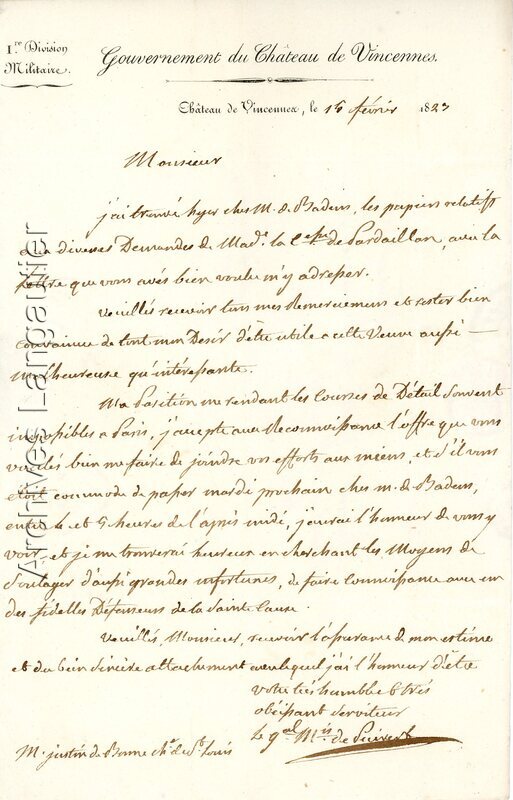 I.re Division
Militaire.
Gouvernement du Château de Vincennes.
Château de Vincennes, le 16 février 1823
Monsieur
j'ai trouvé hyer chez M. de Badens, les papiers relatifs
a diverses Demandes de Mad.e la C.sse de Pardaillan, avec la
lettre que vous avés bien voulu m'y adresser.
veuillés recevoir tous mes Remerciemens et rester bien
convaincu de tout mon Desir d'être utile a cette Veuve aussi
malheureuse qu'intéressante.
Ma Position me rendant les Courses de Détail souvent
impossibles a Paris, j'accepte avec Reconnoissance l'offre que vous
voulés bien me faire de joindre vos efforts aux miens, et s'il vous
étoit commode de passer mardi prochain chez m. de Badens,
entre 4 et 5 heures de l'après midi, j'aurai l'honneur de vous y
voir, et je me trouverai heureux en cherchant les Moyens de
soulager d'aussi grandes infortunes, de faire connoissance avec un
des fidelles Défenseurs de la Sainte Cause.
Veuillés, Monsieur, recevoir l'assurance de mon estime
et du bien sincère attachement avec lequel j'ai l'honneur d'être
votre très humble & très
obéissant serviteur
Le g.al M.is de Puivert
M. justin de Bonne ch.er de St. Louis
Archives Langautier